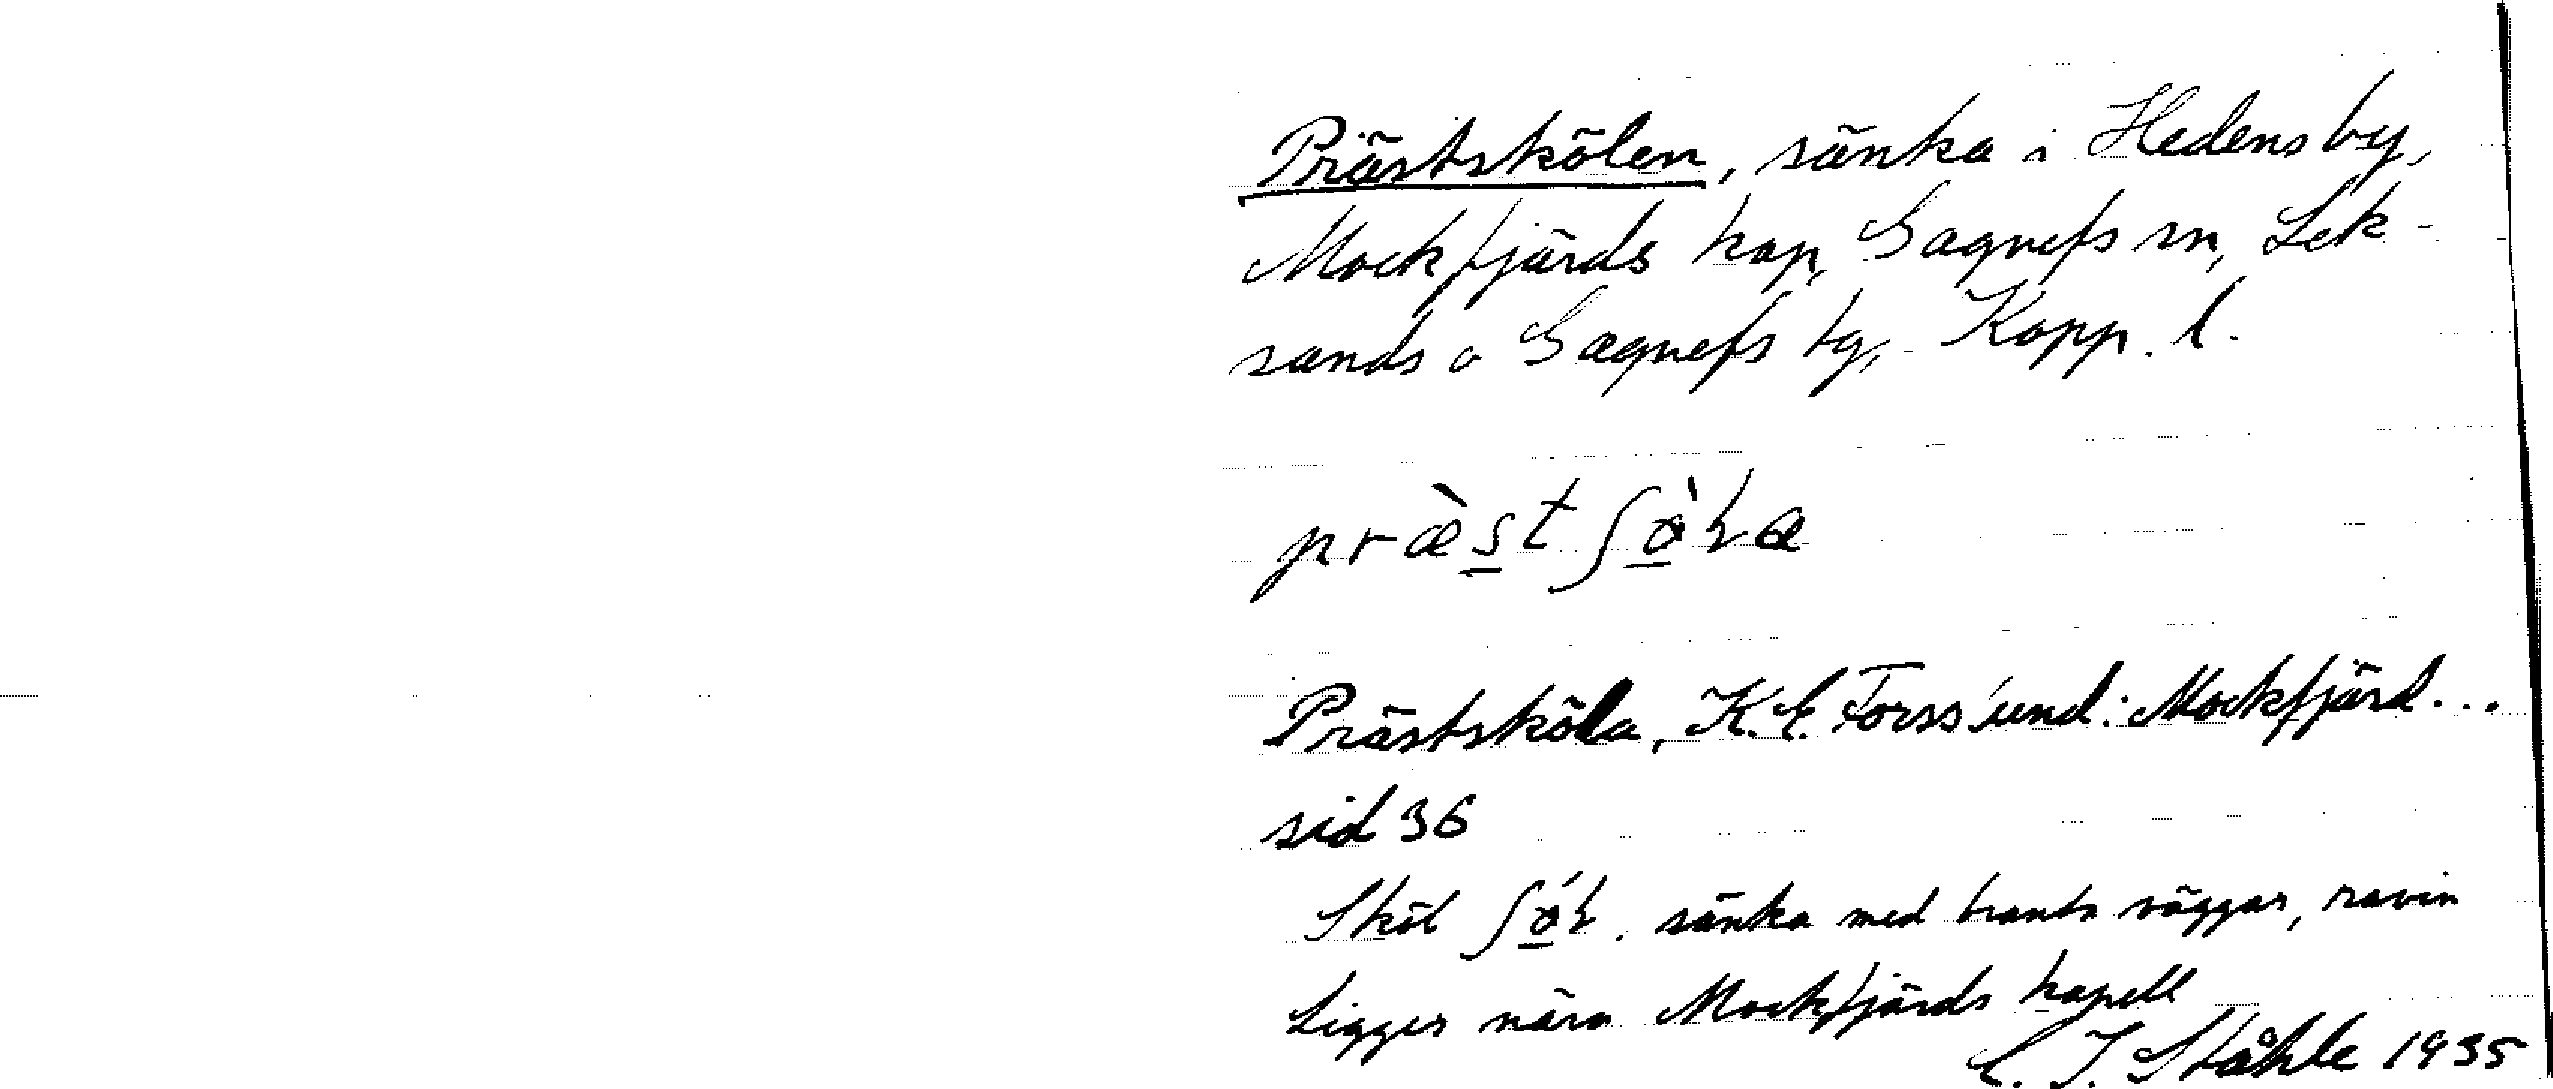 Prästskölen, sänka i Hedensby,
Mockfjärds kap, Gagnefs sn, Lek-
sands o Gagnefs tg, Kopp. l.
præ̀s̲t ʃö̲̀ɫa
Prästsköla, K.E. Forsslund: Mockfjärd...
sid 36
Sköl ʃö̲́ɫ. sänka med branta väggar, ravin
Ligger nära Mockfjärds kapell
C. I. Ståhle 1935